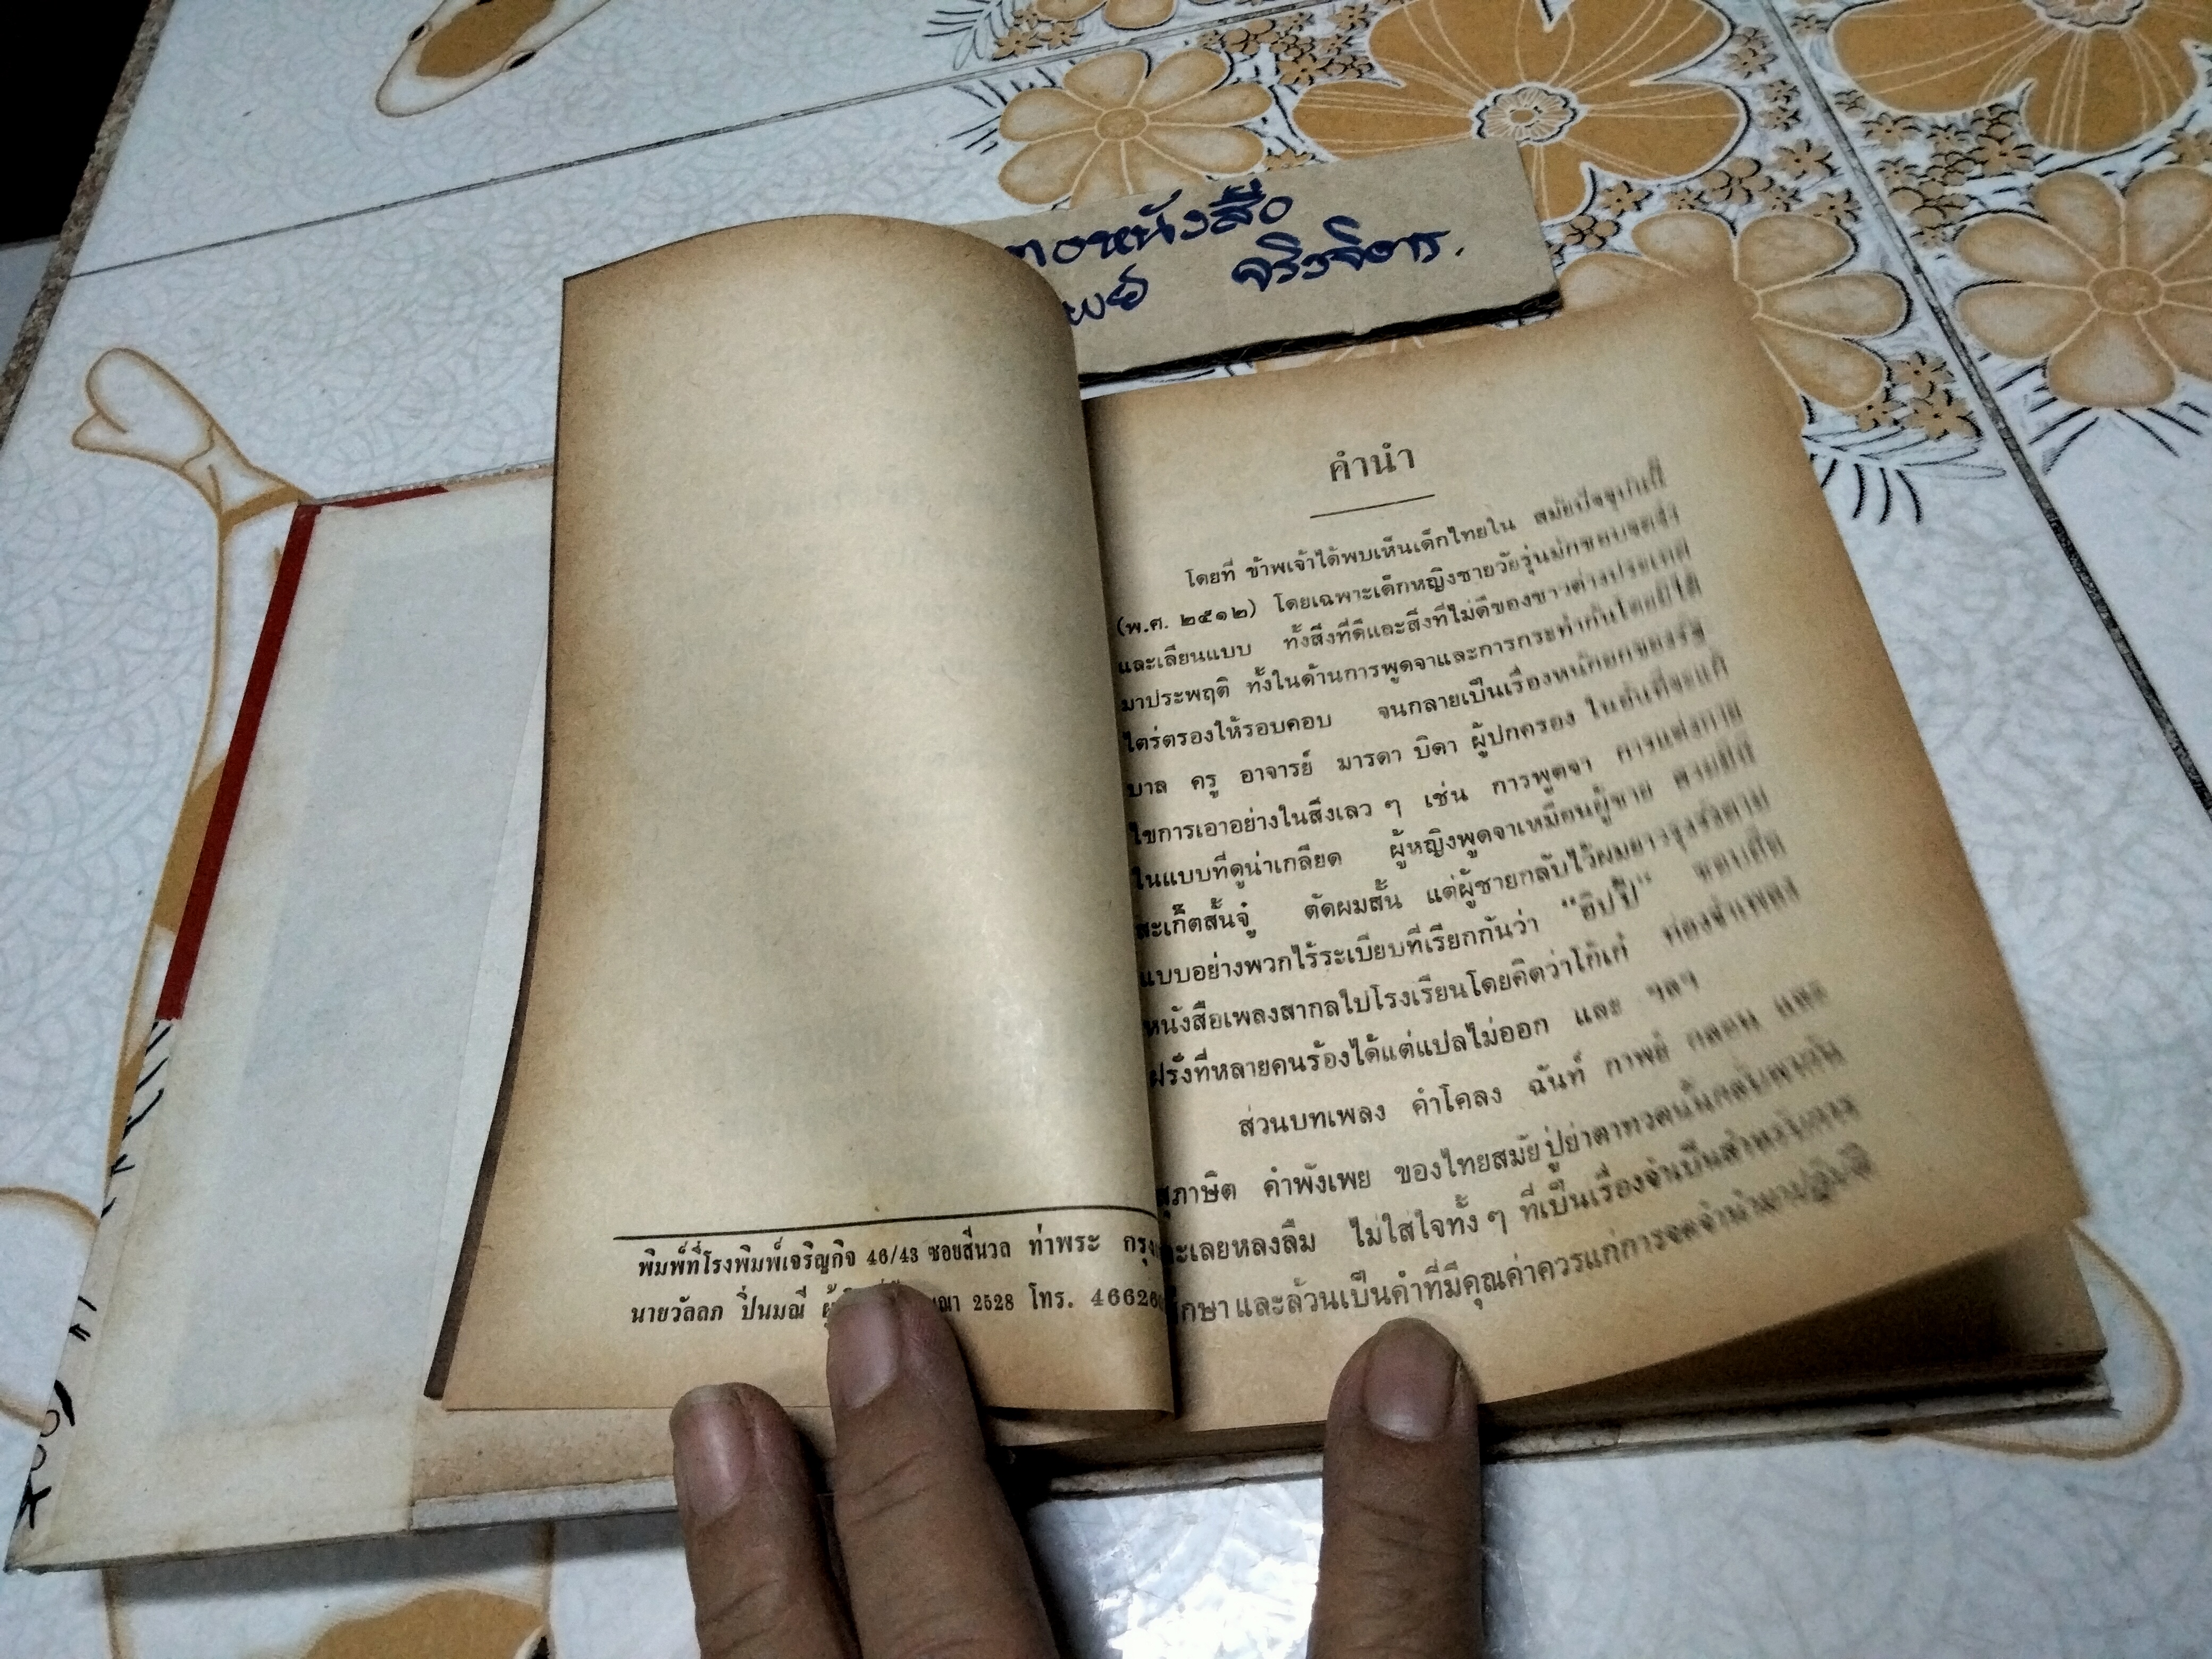 ทองหนังสือ
จริงจิตร.
พิมพ์ที่โรงพิมพ์เจริญกิจ 46/43 ซอยสีนวล ท่าพระ กรุง
นายวัลลภ ปิ่นมณี ผู้ ณา 2528 โทร. 46626
คำนำ
โดยที่ ข้าพเจ้าได้พบเห็นเด็กไทยใน สมัยปัจจุบันนี้
(พ.ศ. ๒๕๑๒) โดยเฉพาะเด็กหญิงชายวัยรุ่นมักชอบจดจำ
และเลียนแบบ ทั้งสิ่งที่ดีและสิ่งที่ไม่ดีของชาวต่างประเทศ
มาประพฤติ ทั้งในด้านการพูดจาและการกระทำกันโดยมิได้
ไตร่ตรองให้รอบคอบ จนกลายเป็นเรื่องหนักอกของรัฐ
บาล ครู อาจารย์ มารดา บิดา ผู้ปกครอง ในอันที่จะแก้
ไขการเอาอย่างในสิ่งเลว ๆ เช่น การพูดจา การแต่งกาย
ในแบบที่ดูน่าเกลียด ผู้หญิงพูดจาเหมือนผู้ชาย สวมมินิ
สะเก็ตสั้นจู๋ ตัดผมสั้น แต่ผู้ชายกลับไว้ผมยาวรุงรังตาม
แบบอย่างพวกไร้ระเบียบที่เรียกกันว่า "ฮิปปี้" ชอบถือ
หนังสือเพลงสากลไปโรงเรียนโดยคิดว่าโก้เก๋ ท่องจำเพลง
ฝรั่งที่หลายคนร้องได้แต่แปลไม่ออก และ ฯลฯ
ส่วนบทเพลง คำโคลง ฉันท์ กาพย์ กลอน และ
สุภาษิต คำพังเพย ของไทยสมัยปู่ย่าตาทวดนั้นกลับพากัน
ละเลยหลงลืม ไม่ใส่ใจทั้ง ๆ ที่เป็นเรื่องจำเป็นสำหรับการ
ศึกษาและล้วนเป็นคำที่มีคุณค่าควรแก่การจดจำนำมาปฏิบัติ